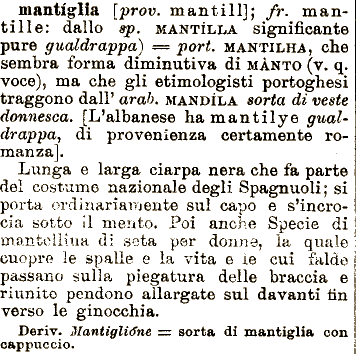 mantíglia [prov. mantill]; fr. man-
tille: dallo sp. MANTÍLLA significante
pure gualdrappa) = port. MANTILHA, che
sembra forma diminutiva di MÀNTO (v. q.
voce), ma che gli etimologisti portoghesi
traggono dall' arab. MANDÎLA sorta di veste
donnesca. [L'albanese ha mantilye gual-
drappa, di provenienza certamente ro-
manza].
Lunga e larga ciarpa nera che fa parte
del costume nazionale degli Spagnuoli; si
porta ordinariamente sul capo e s'incro-
cia sotto il mento. Poi anche Specie di
mantellina di seta per donne, la quale
cuopre le spalle e la vita e le cui falde
passano sulla piegatura delle braccia e
riunite pendono allargate sul davanti fin
verso le ginocchia.
Deriv. Mantiglióne = sorta di mantiglia con
cappuccio.